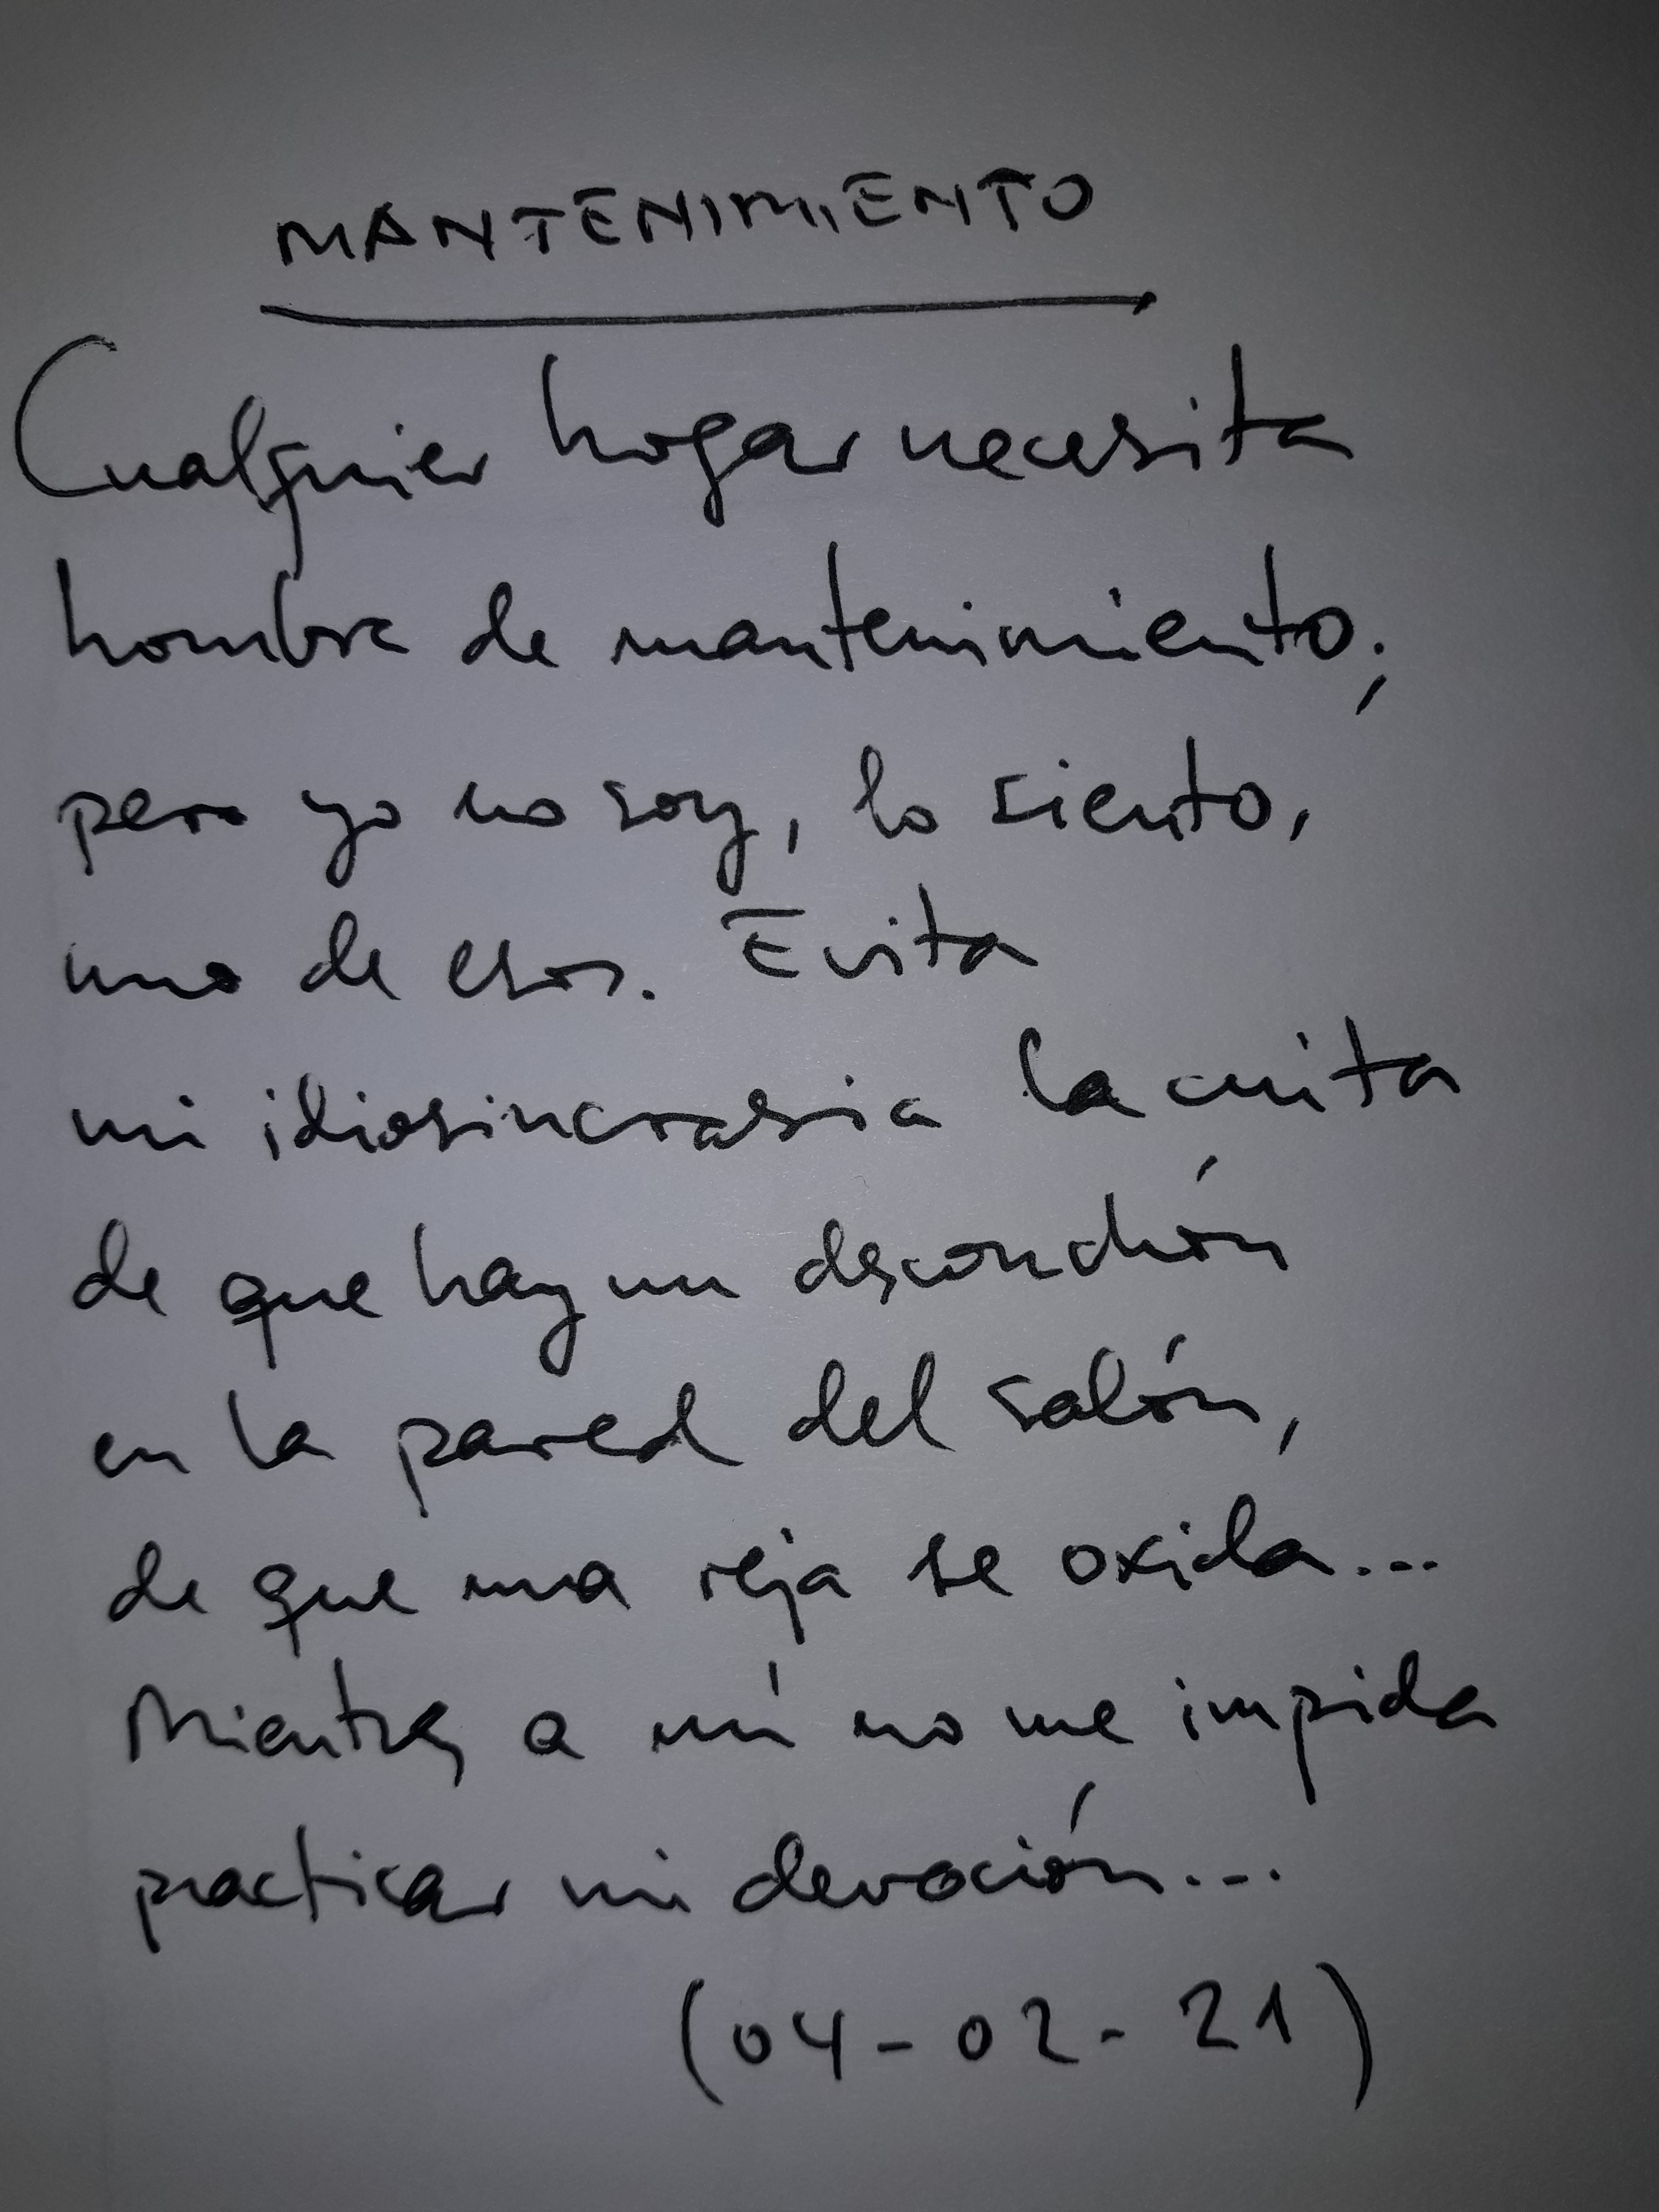 MANTENIMIENTO
Cualquier hogar necesita
hombre de mantenimiento;
pero yo no soy, lo siento,
uno de esos. Evita
mi idiosincrasia la cuita
de que hay un desconchón
en la pared del salón,
de que una reja se oxida...
Mientras a mí no me impida
practicar mi devoción...
(04-02-21)